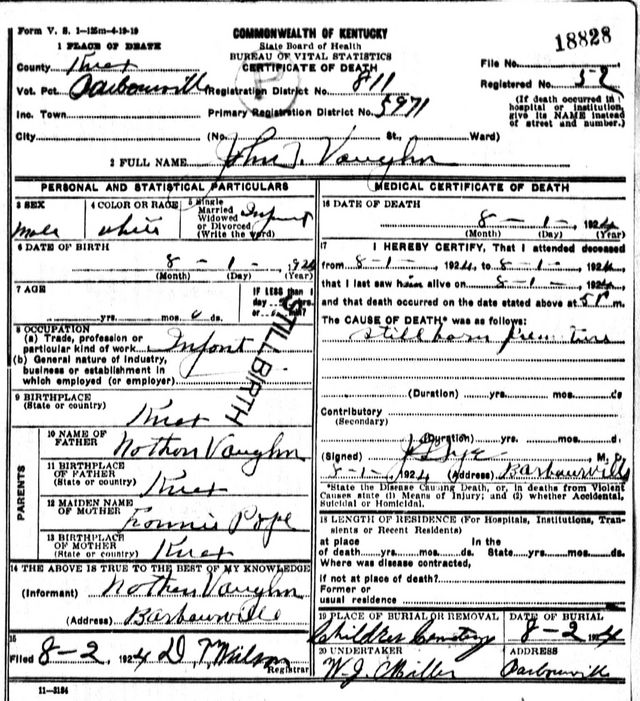 Form V. S. 1—125m—4-19-19
COMMONWEALTH OF KENTUCKY
State Board of Health
BUREAU OF VITAL STATISTICS
CERTIFICATE OF DEATH
18828
1 PLACE OF DEATH
County Knox
File No.
Vot. Pct. Barbourville Registration District No. 811
Registered No. 52
Inc. Town Primary Registration District No. 5971
(If death occurred in
hospital or institution,
give its NAME instead
of street and number.)
City (No. St., Ward)
2 FULL NAME John T. Vaughn
PERSONAL AND STATISTICAL PARTICULARS
3 SEX
Male
4 COLOR OR RACE
White
5 Single
Married
Widowed
or Divorced
(Write the word)
Infant
6 DATE OF BIRTH
8 - 1 - , 1924
(Month) (Day) (Year)
7 AGE
yrs. mos. 0 ds.
IF LESS than 1
day
or
STILLBIRTH
8 OCCUPATION
(a) Trade, profession or
particular kind of work Infant
(b) General nature of industry,
business or establishment in
which employed (or employer)
9 BIRTHPLACE
(State or country) Knox
PARENTS
10 NAME OF
FATHER Nothen Vaughn
11 BIRTHPLACE
OF FATHER
(State or country) Knox
12 MAIDEN NAME
OF MOTHER Fronnie Pope
13 BIRTHPLACE
OF MOTHER
(State or country) Knox
14 THE ABOVE IS TRUE TO THE BEST OF MY KNOWLEDGE
(Informant) Nothen Vaughn
(Address) Barbourville
15
Filed 8-2, 1924 D. T. Wilson
Registrar
11—3184
MEDICAL CERTIFICATE OF DEATH
16 DATE OF DEATH
8 - 1 - , 1924
(Month) (Day) (Year)
17 I HEREBY CERTIFY, That I attended deceased
from 8-1-, 1924, to 8-1-, 1924,
that I last saw him alive on 8-1-, 1924,
and that death occurred on the date stated above at 5 P m.
The CAUSE OF DEATH* was as follows:
Stillborn
(Duration) yrs. mos. ds
Contributory
(Secondary)
(Duration) yrs. mos. d.
(Signed) M. D.
8-1-, 1924 (Address) Barbourville
*State the Disease Causing Death, or, in deaths from Violent
Causes state (1) Means of Injury; and (2) whether Accidental,
Suicidal or Homicidal.
18 LENGTH OF RESIDENCE (For Hospitals, Institutions, Tran-
sients or Recent Residents)
at place In the
of death yrs. mos. ds. State yrs. mos. ds.
Where was disease contracted,
if not at place of death?
Former or
usual residence
19 PLACE OF BURIAL OR REMOVAL
Childres Cemetery
DATE OF BURIAL
8-2 1924
20 UNDERTAKER
W. J. Miller
ADDRESS
Barbourville